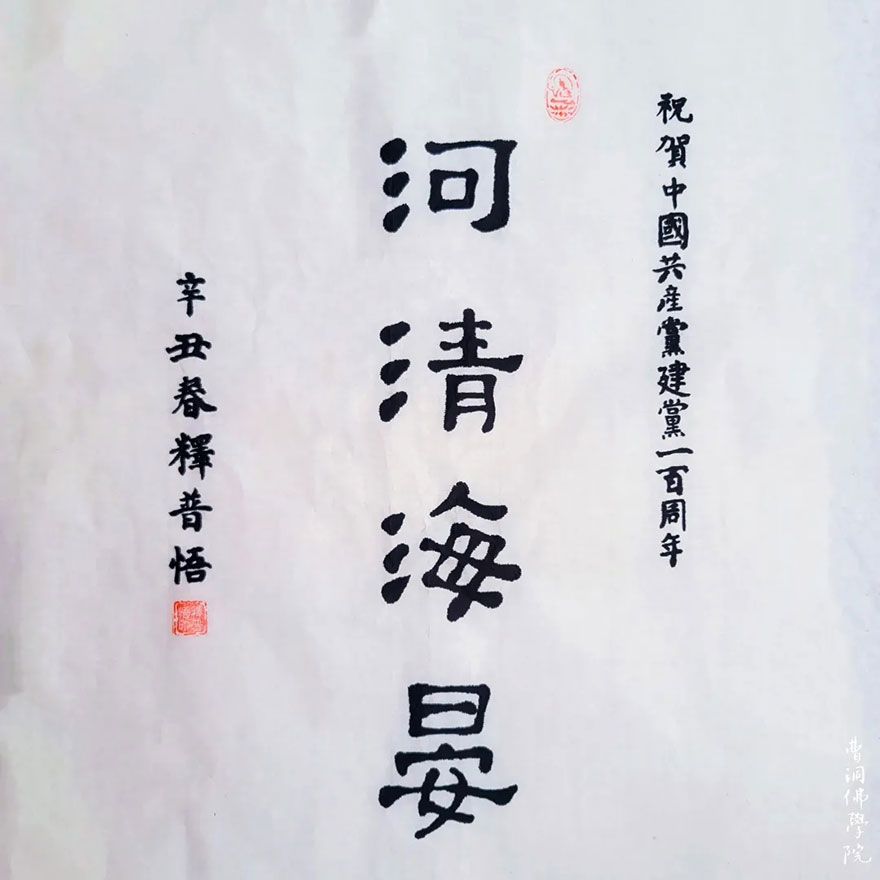 祝賀中國共産黨建黨一百周年
河清海晏
辛丑春釋普悟
曹洞佛學院